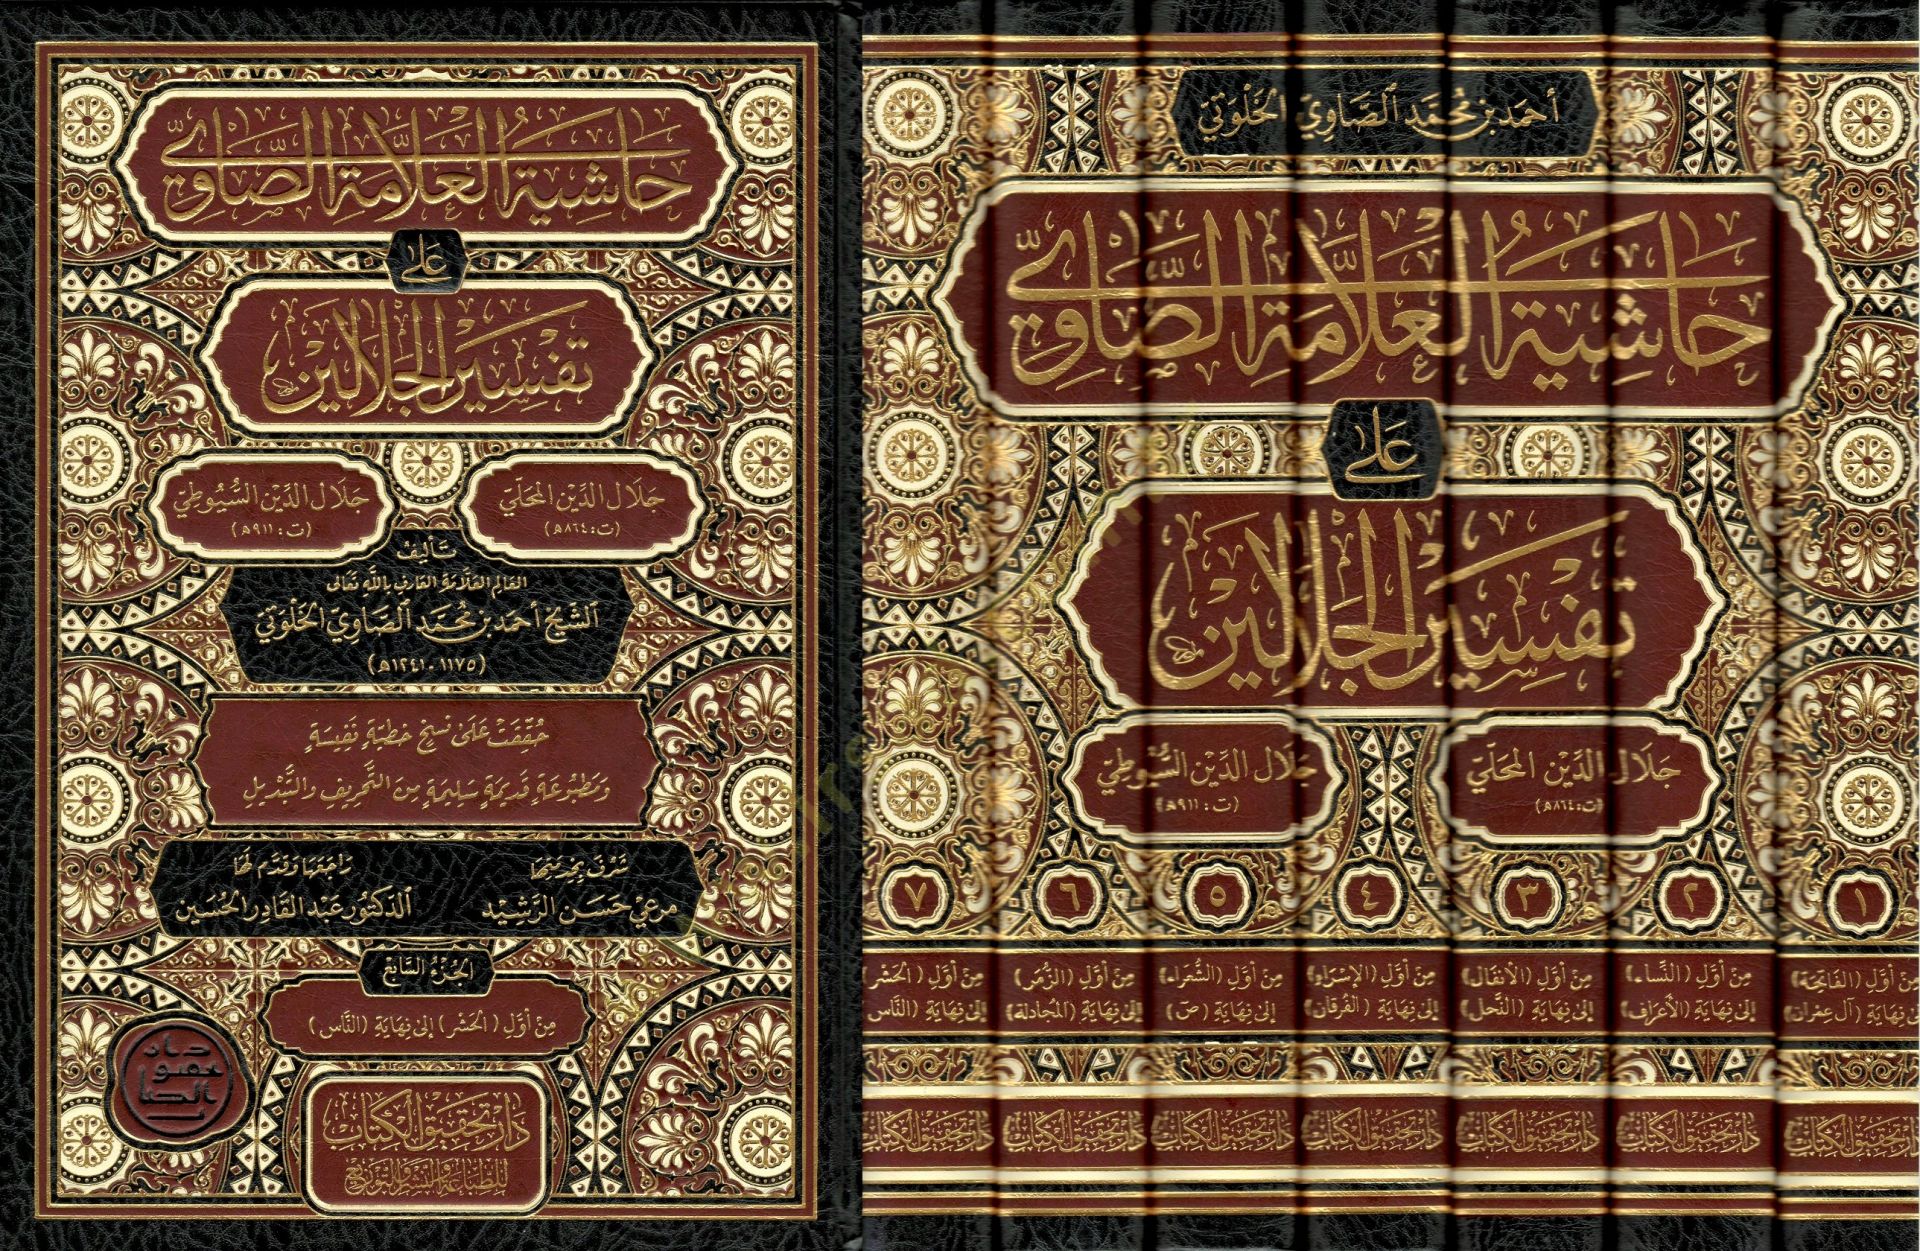 حَاشِيَةُ العَلَّامَةِ الصَّاوِيِّ
عَلَى
تَفْسِيرِ الجَلَالَيْنِ
جَلَالُ الدِّيْنِ المَحَلِّيّ
(ت: ٨٦٤هـ)
جَلَالُ الدِّيْنِ السُّيُوطِيّ
(ت: ٩١١هـ)
تَألِيْفُ
العَالِمِ العَلَّامَةِ العَارِفِ بِاللَّهِ تَعَالَى
الشَّيْخِ أَحْمَد بْنِ مُحَمَّد الصَّاوِيّ الخَلْوَتِيّ
(١١٧٥-١٢٤١هـ)
حُقِّقَتْ عَلَى نُسَخٍ خَطِّيَّةٍ نَفِيسَةٍ
وَمَطْبُوعَةٍ قَدِيمَةٍ سَلِيمَةٍ مِنَ التَّحْرِيفِ وَالتَّبْدِيلِ
شَرُفَ بِخِدْمَتِهَا
مرعي حَسَن الرَّشِيد
رَاجَعَهَا وَقَدَّمَ لَهَا
الدكتور عَبْد القَادِر الحُسَيْن
الجُزْءُ السَّابِعُ
مِنْ أَوَّلِ (الحَشْرِ) إِلَى نِهَايَةِ (النَّاسِ)
دَارُ تَحْقِيقِ الكِتَابِ
لِلطِّبَاعَةِ وَالنَّشْرِ وَالتَّوْزِيعِ
أَحْمَد بْن مُحَمَّد الصَّاوِيّ الخَلْوَتِيّ
حَاشِيَةُ العَلَّامَةِ الصَّاوِيِّ
عَلَى
تَفْسِيرِ الجَلَالَيْنِ
جَلَالُ الدِّيْنِ المَحَلِّيّ
(ت: ٨٦٤هـ)
جَلَالُ الدِّيْنِ السُّيُوطِيّ
(ت: ٩١١هـ)
١
مِنْ أَوَّلِ (الفَاتِحَة)
إِلَى نِهَايَةِ (آل عِمْرَان)
دَارُ تَحْقِيقِ الكِتَابِ
٢
مِنْ أَوَّلِ (النِّسَاء)
إِلَى نِهَايَةِ (الأَعْرَاف)
دَارُ تَحْقِيقِ الكِتَابِ
٣
مِنْ أَوَّلِ (الأَنْفَال)
إِلَى نِهَايَةِ (النَّحْل)
دَارُ تَحْقِيقِ الكِتَابِ
٤
مِنْ أَوَّلِ (الإِسْرَاء)
إِلَى نِهَايَةِ (الفُرْقَان)
دَارُ تَحْقِيقِ الكِتَابِ
٥
مِنْ أَوَّلِ (الشُّعَرَاء)
إِلَى نِهَايَةِ (ص)
دَارُ تَحْقِيقِ الكِتَابِ
٦
مِنْ أَوَّلِ (الزُّمَر)
إِلَى نِهَايَةِ (المُجَادلة)
دَارُ تَحْقِيقِ الكِتَابِ
٧
مِنْ أَوَّلِ (الحَشْر
إِلَى نِهَايَةِ (النَّاس
دَارُ تَحْقِيقِ الكِتَابِ